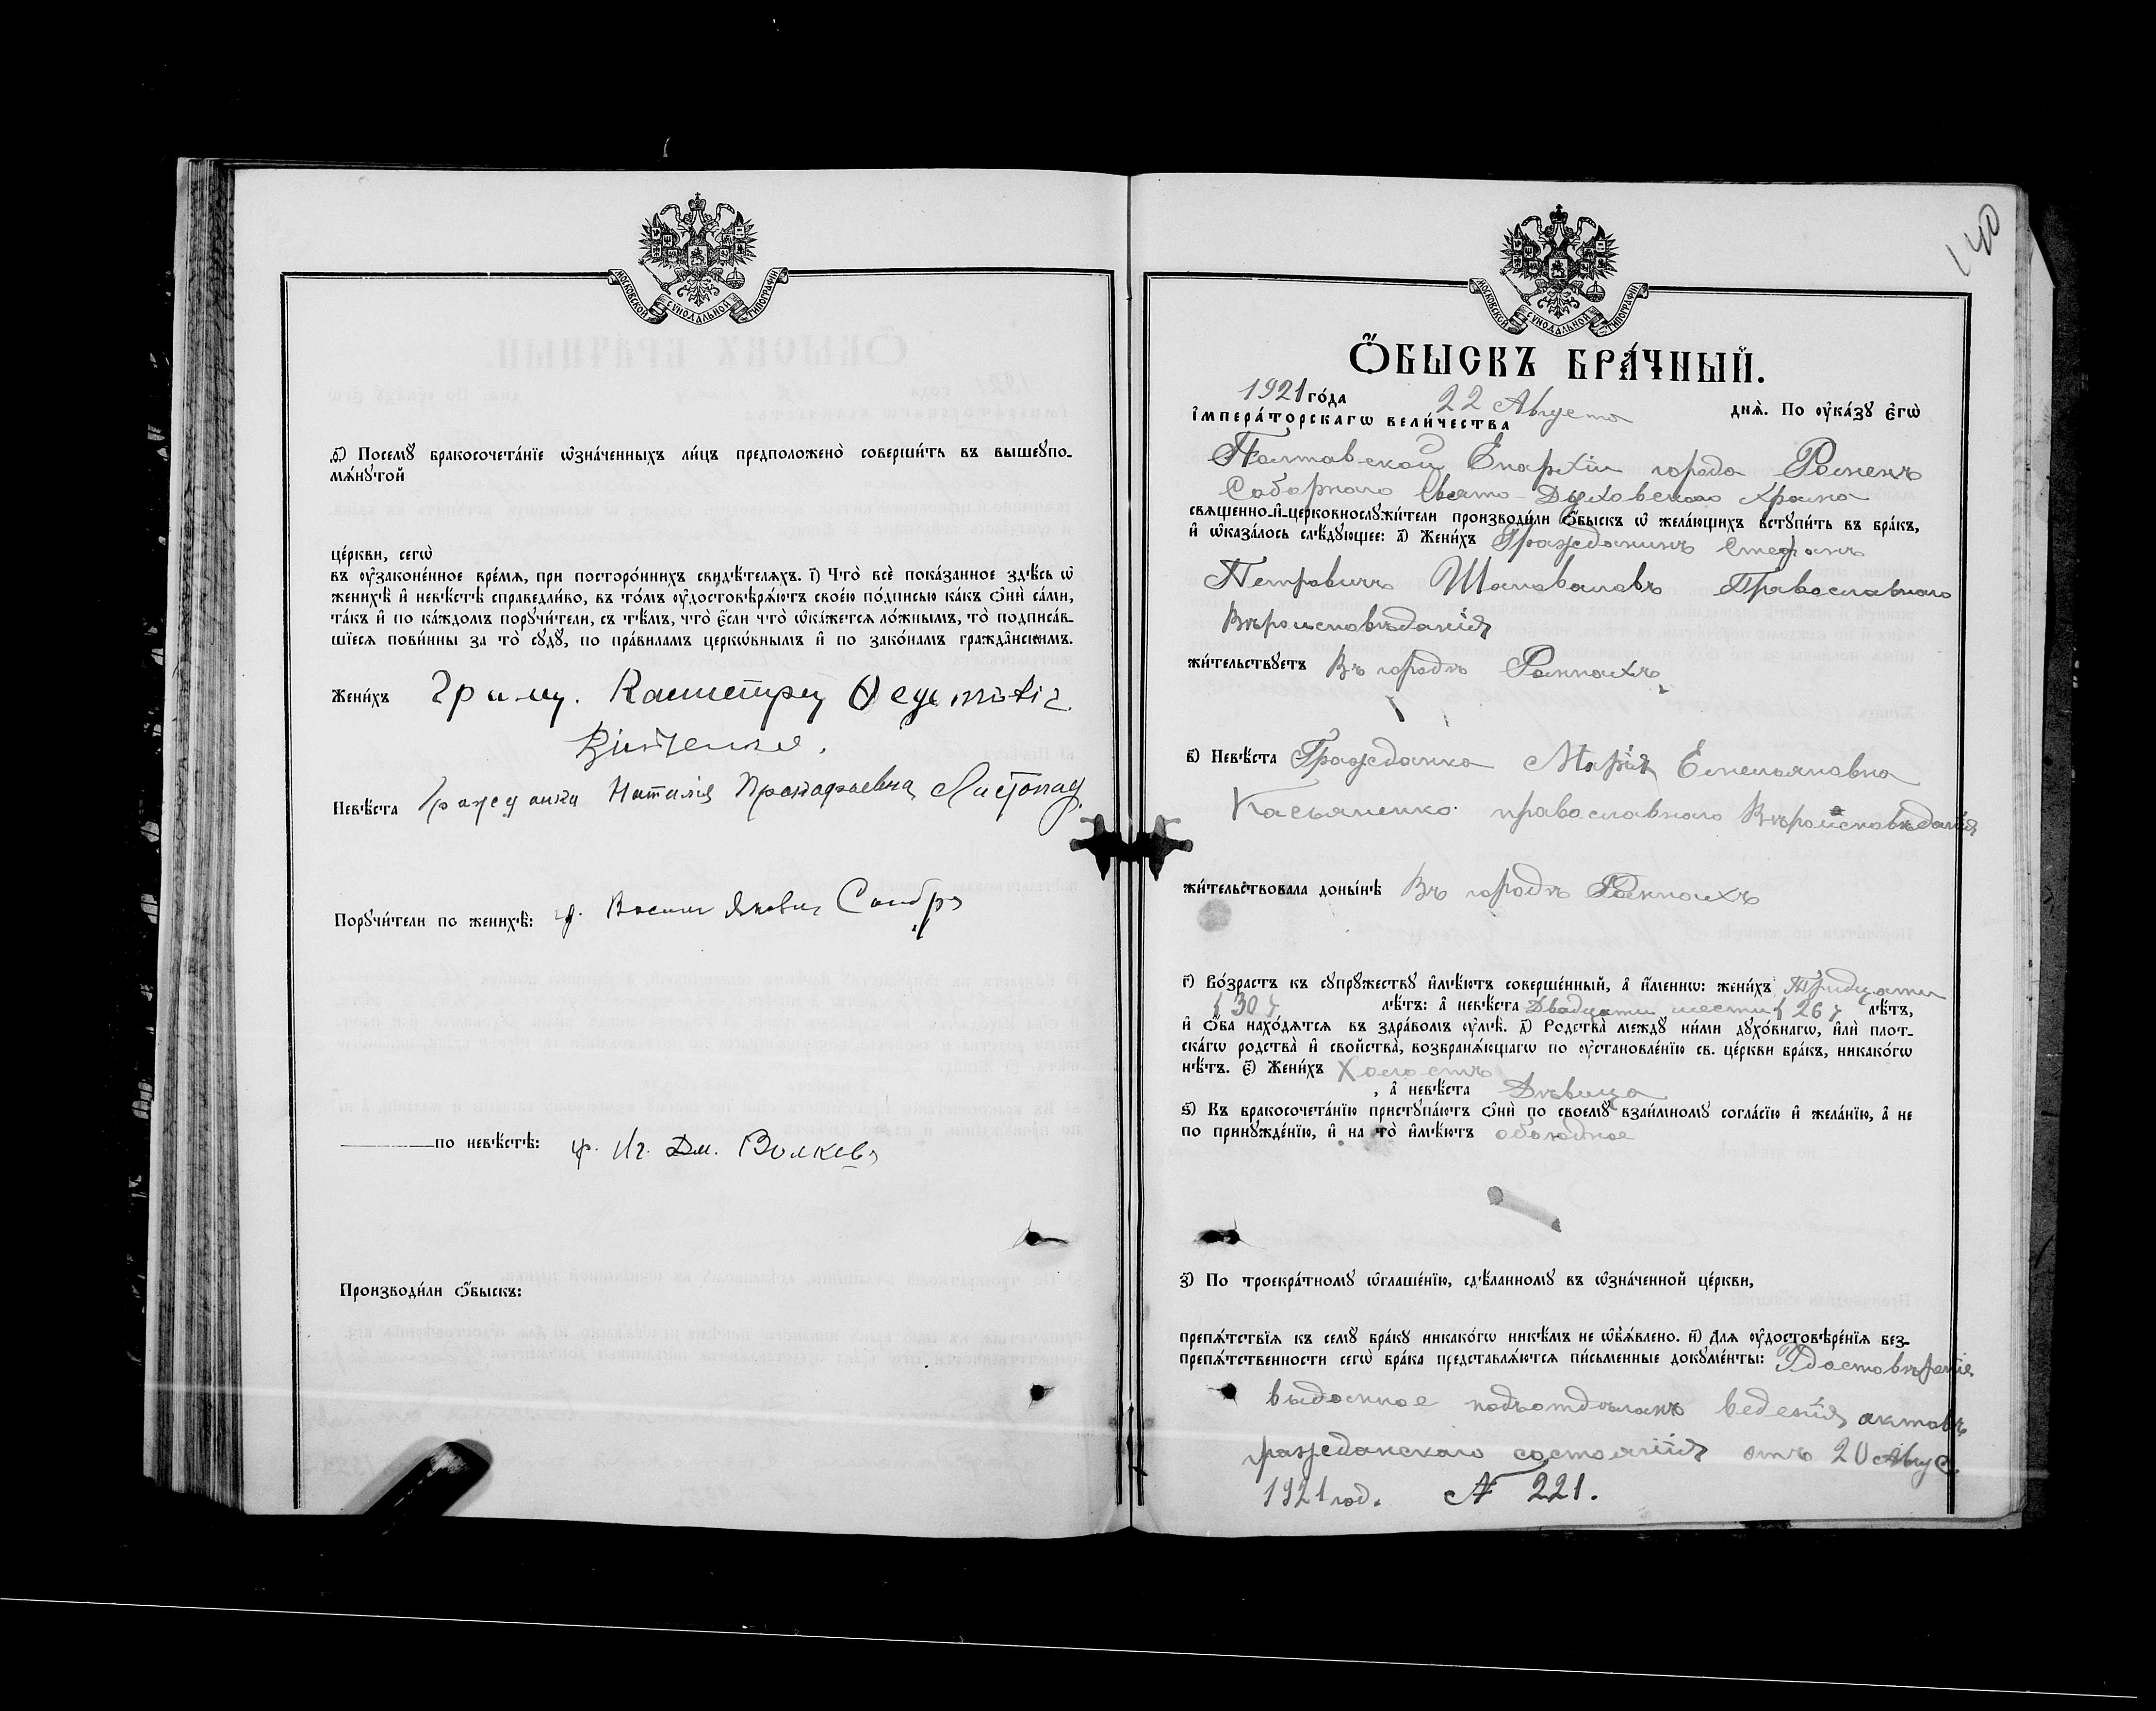 МОСКОВСКОЙ СѴНОДАЛЬНОЙ ТИПОГРАФІИ
ѳ҃) Посемꙋ̀ бракосочета́нїе ѡ҆зна́ченныхъ ли́цъ предположено̀ соверши́ть въ вышеꙋпо-
мѧ́нꙋтой
це́ркви, сегѡ̀
въ ᲂу҆зако́ненное вре́мѧ, при посторо́ннихъ свидѣ́телѧхъ. і҃) Что̀ всѐ пока́занное здѣ́сь ѡ҆
женихѣ̀ и҆ невѣ́стѣ справедли́во, въ то́мъ ᲂу҆достовѣрѧ́ютъ свое́ю по́дписью ка́къ ѻ҆нѝ са́ми,
та́къ и҆ по ка́ждомъ порꙋчи́тели, съ тѣ́мъ, что̀ є҆́сли что̀ ѡ҆ка́жетсѧ ло́жнымъ, то̀ подписа́в-
шїесѧ пови́нны за то̀ сꙋдꙋ̀, по пра́виламъ церкѡ́внымъ и҆ по зако́намъ гражда́нскимъ.
Жени́хъ
Невѣ́ста Гражданка Наталія Прокофьевна Листопад
Порꙋчи́тели по женихѣ̀: гр.
по невѣ́стѣ: гр. Иг. Дм. Волковъ
Производи́ли ѻ҆́быскъ:
140
МОСКОВСКОЙ СѴНОДАЛЬНОЙ ТИПОГРАФІИ
Ѻ҆́БЫСКЪ БРА́ЧНЫЙ.
1921 го́да 22 Августа днѧ̀. По ᲂу҆ка́зꙋ є҆гѡ̀
і҆мпера́торскагѡ вели́чества
Полтавской Епархіи города Роменъ
Соборного Свято-Духовского храма
свѧще́нно-и҆-церковнослꙋжи́тели производи́ли ѻ҆́быскъ ѡ҆ жела́ющихъ встꙋпи́ть въ бра́къ,
и҆ ѡ҆каза́лось слѣ́дꙋющее: а҃) Жени́хъ Гражданинъ Стефанъ
Петровичъ Шаповаловъ Православного
Вѣроисповѣданія
жи́тельствꙋетъ Въ городѣ Ромнахъ
в҃) Невѣ́ста Гражданка Марія Емельяновна
Касьяненко православного Вѣроисповѣданія
жи́тельствовала доны́нѣ Въ городѣ Ромнахъ
г҃) Во́зрастъ къ сꙋпрꙋ́жествꙋ и҆мѣ́ютъ соверше́нный, а҆ и҆́менно: жени́хъ Тридцати
{30} лѣ́тъ: а҆ невѣ́ста Двадцати шести {26} лѣ́тъ,
и҆ ѻ҆́ба нахо́дѧтсѧ въ здра́вомъ ᲂу҆мѣ̀. д҃) Родства̀ междꙋ̀ ни́ми дꙋхо́внагѡ, и҆лѝ плот-
ска́гѡ родства̀ и҆ сво́йства, возбранѧ́ющагѡ по ᲂу҆становле́нїю св. це́ркви бра́къ, никако́гѡ
нѣ́тъ. є҃) Жени́хъ Холостъ
, а҆ невѣ́ста Дѣвица
ѕ҃) Къ бракосочета́нїю пристꙋпа́ютъ ѻ҆нѝ по своемꙋ̀ взаи́мномꙋ согла́сїю и҆ жела́нїю, а҆ не
по принꙋжде́нїю, и҆ на то̀ и҆мѣ́ютъ обоюдное
з҃) По троекра́тномꙋ ѡ҆глаше́нїю, сдѣ́ланномꙋ въ ѡ҆зна́ченной це́ркви,
препѧ́тствїѧ къ семꙋ̀ бра́кꙋ никако́гѡ никѣ́мъ не ѡ҆бъѧ́влено. и҃) Длѧ ᲂу҆достовѣре́нїѧ без-
препѧ́тственности сегѡ̀ бра́ка представлѧ́ютсѧ пи́сьменные докꙋме́нты: Удостовѣреніе
выданное подъотдѣломъ веденія актовъ
гражданскаго состоянія отъ 20 Авгус.
1921 год. № 221.